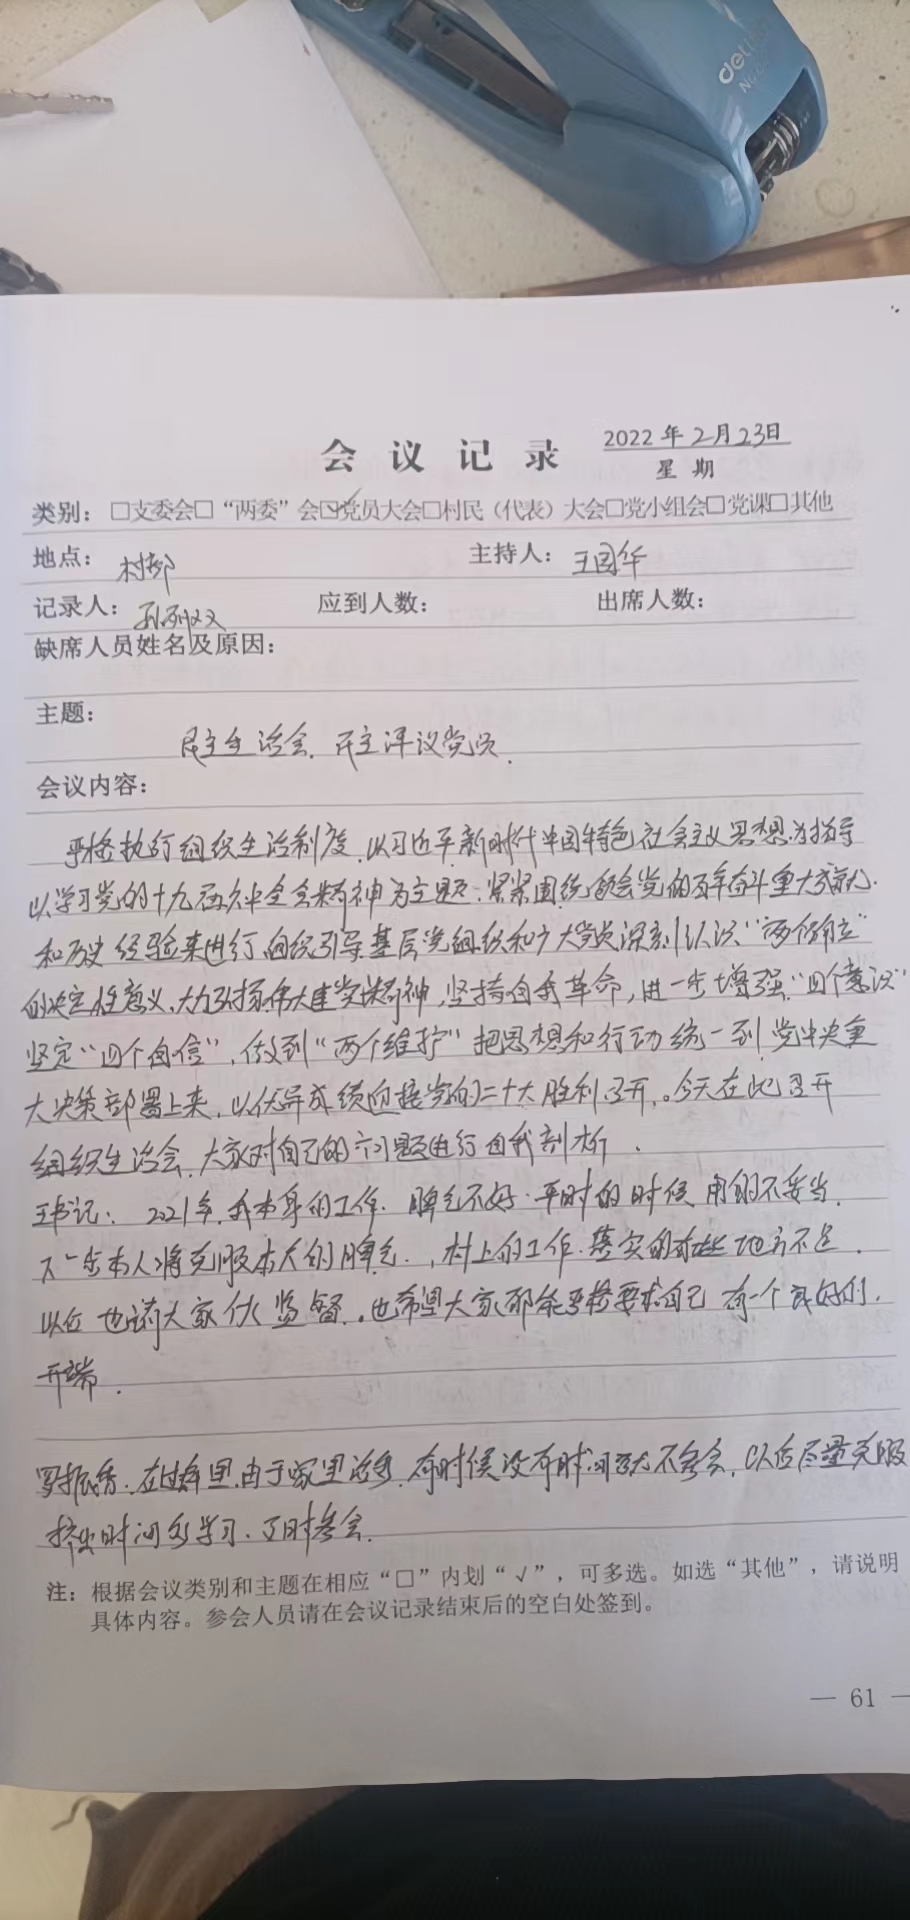 deli
会议记录
2022年2月23日
星期
类别：□支委会□“两委”会☑党员大会□村民（代表）大会□党小组会□党课□其他
地点：村部 主持人：王国华
记录人： 应到人数： 出席人数：
缺席人员姓名及原因：
主题：
民主生活会、民主评议党员.
会议内容：
严格执行组织生活制度，以习近平新时代中国特色社会主义思想为指导
以学习党的十九届六中全会精神为主题；紧紧围绕领会党的百年奋斗重大成就.
和历史经验来进行，组织引导基层党组织和广大党员深刻认识“两个确立”
的决定性意义、大力弘扬伟大建党精神，坚持自我革命，进一步增强“四个意识”
坚定“四个自信”，做到“两个维护”把思想和行动统一到党中央重
大决策部署上来，以优异成绩迎接党的二十大胜利召开。今天在此召开
组织生活会，大家对自己的问题进行自我剖析.
王书记：2021年，我本身的工作. 脾气不好.平时的时候 用的不妥当.
下一步本人将克服本人的脾气. ，村上的工作.落实的有些地方不足.
以后也请大家伙监督.也希望大家都能严格要求自己 有一个良好的.
开端.
罗振香：在过年里，由于家里活多，有时候没有时间就不参会，以后尽量克服
挤出时间多学习、及时参会.
注：根据会议类别和主题在相应“□”内划“√”，可多选。如选“其他”，请说明
具体内容。参会人员请在会议记录结束后的空白处签到。
— 61 —